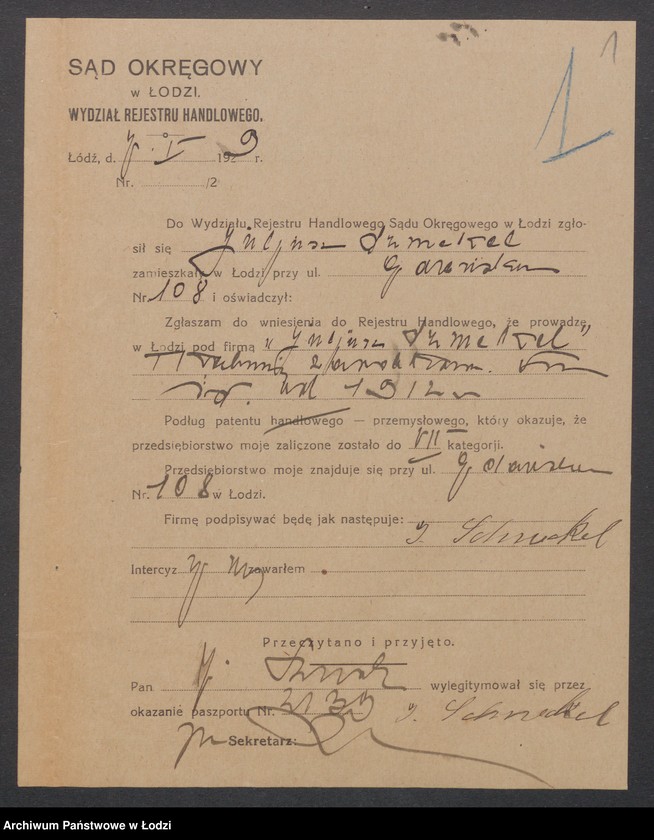 1
1
SĄD OKRĘGOWY
w ŁODZI.
WYDZIAŁ REJESTRU HANDLOWEGO.
Łódź, d. 7. I 1929 r.
Nr. /2
Do Wydziału Rejestru Handlowego Sądu Okręgowego w Łodzi zgło-
sił się Juljusz Szmekel
zamieszkały w Łodzi przy ul. Gdańska
Nr. 108 i oświadczył:
Zgłaszam do wniesienia do Rejestru Handlowego, że prowadzę
w Łodzi pod firmą „Juljusz Szmekel"
od 1912 r
Podług patentu handlowego — przemysłowego, który okazuje, że
przedsiębiorstwo moje zaliczone zostało do VII kategorji.
Przedsiębiorstwo moje znajduje się przy ul. Gdańska
Nr. 108 w Łodzi.
Firmę podpisywać będę jak następuje:
J. Schmekel
Intercyzy nie zawarłem.
Przeczytano i przyjęto.
Pan J. wylegitymował się przez
okazanie paszportu Nr. 3139 J. Schmekel
Sekretarz:
Archiwum Państwowe w Łodzi